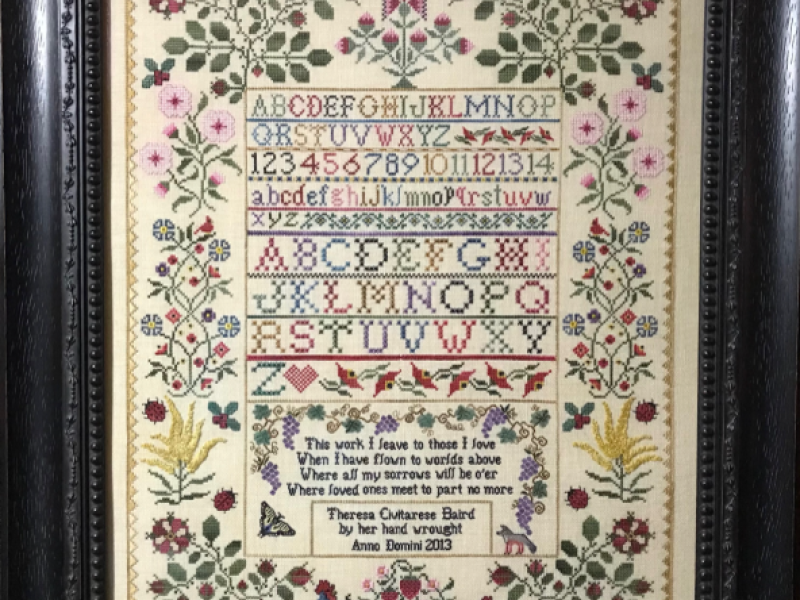 ABCDEFGHIJKLMNOP
QRSTUVWXYZ
1234567891011121314
abcdefghijklmnopqrstuvw
xyz
ABCDEFGHI
JKLMNOPQ
RSTUVWXY
Z
This work I leave to those I love
When I have flown to worlds above
Where all my sorrows will be o'er
Where loved ones meet to part no more
Theresa Civitarese Baird
by her hand wrought
Anno Domini 2013